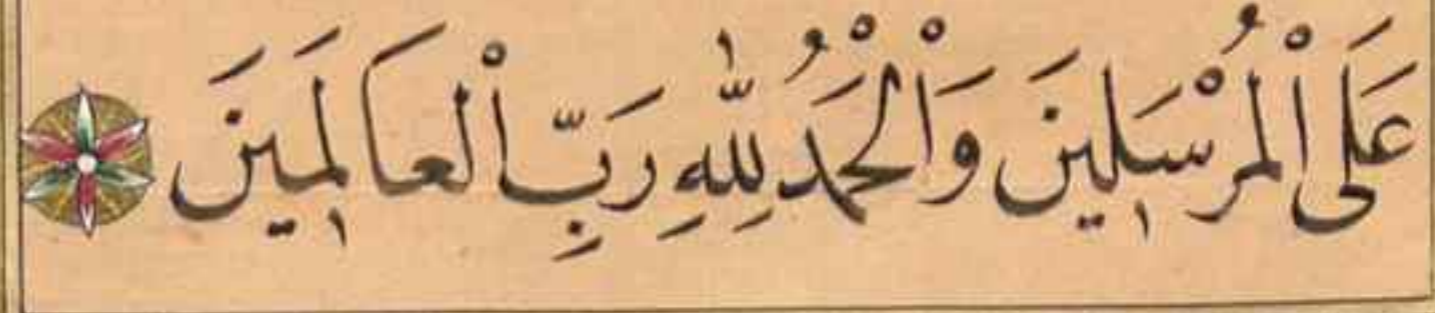 عَلَى الْمُرْسَلِينَ وَالْحَمْدُ لِلّٰهِ رَبِّ الْعَالَمِينَ